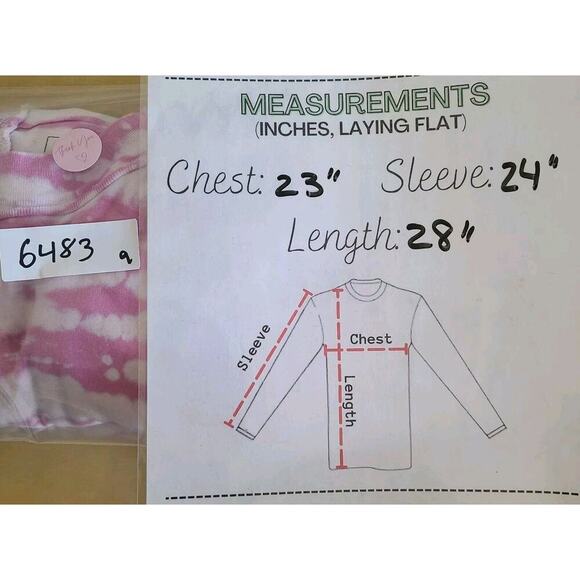 MEASUREMENTS
(INCHES, LAYING FLAT)
Chest: 23" Sleeve: 24"
Length: 28"
Thank You
6483 a
Sleeve
Chest
Length